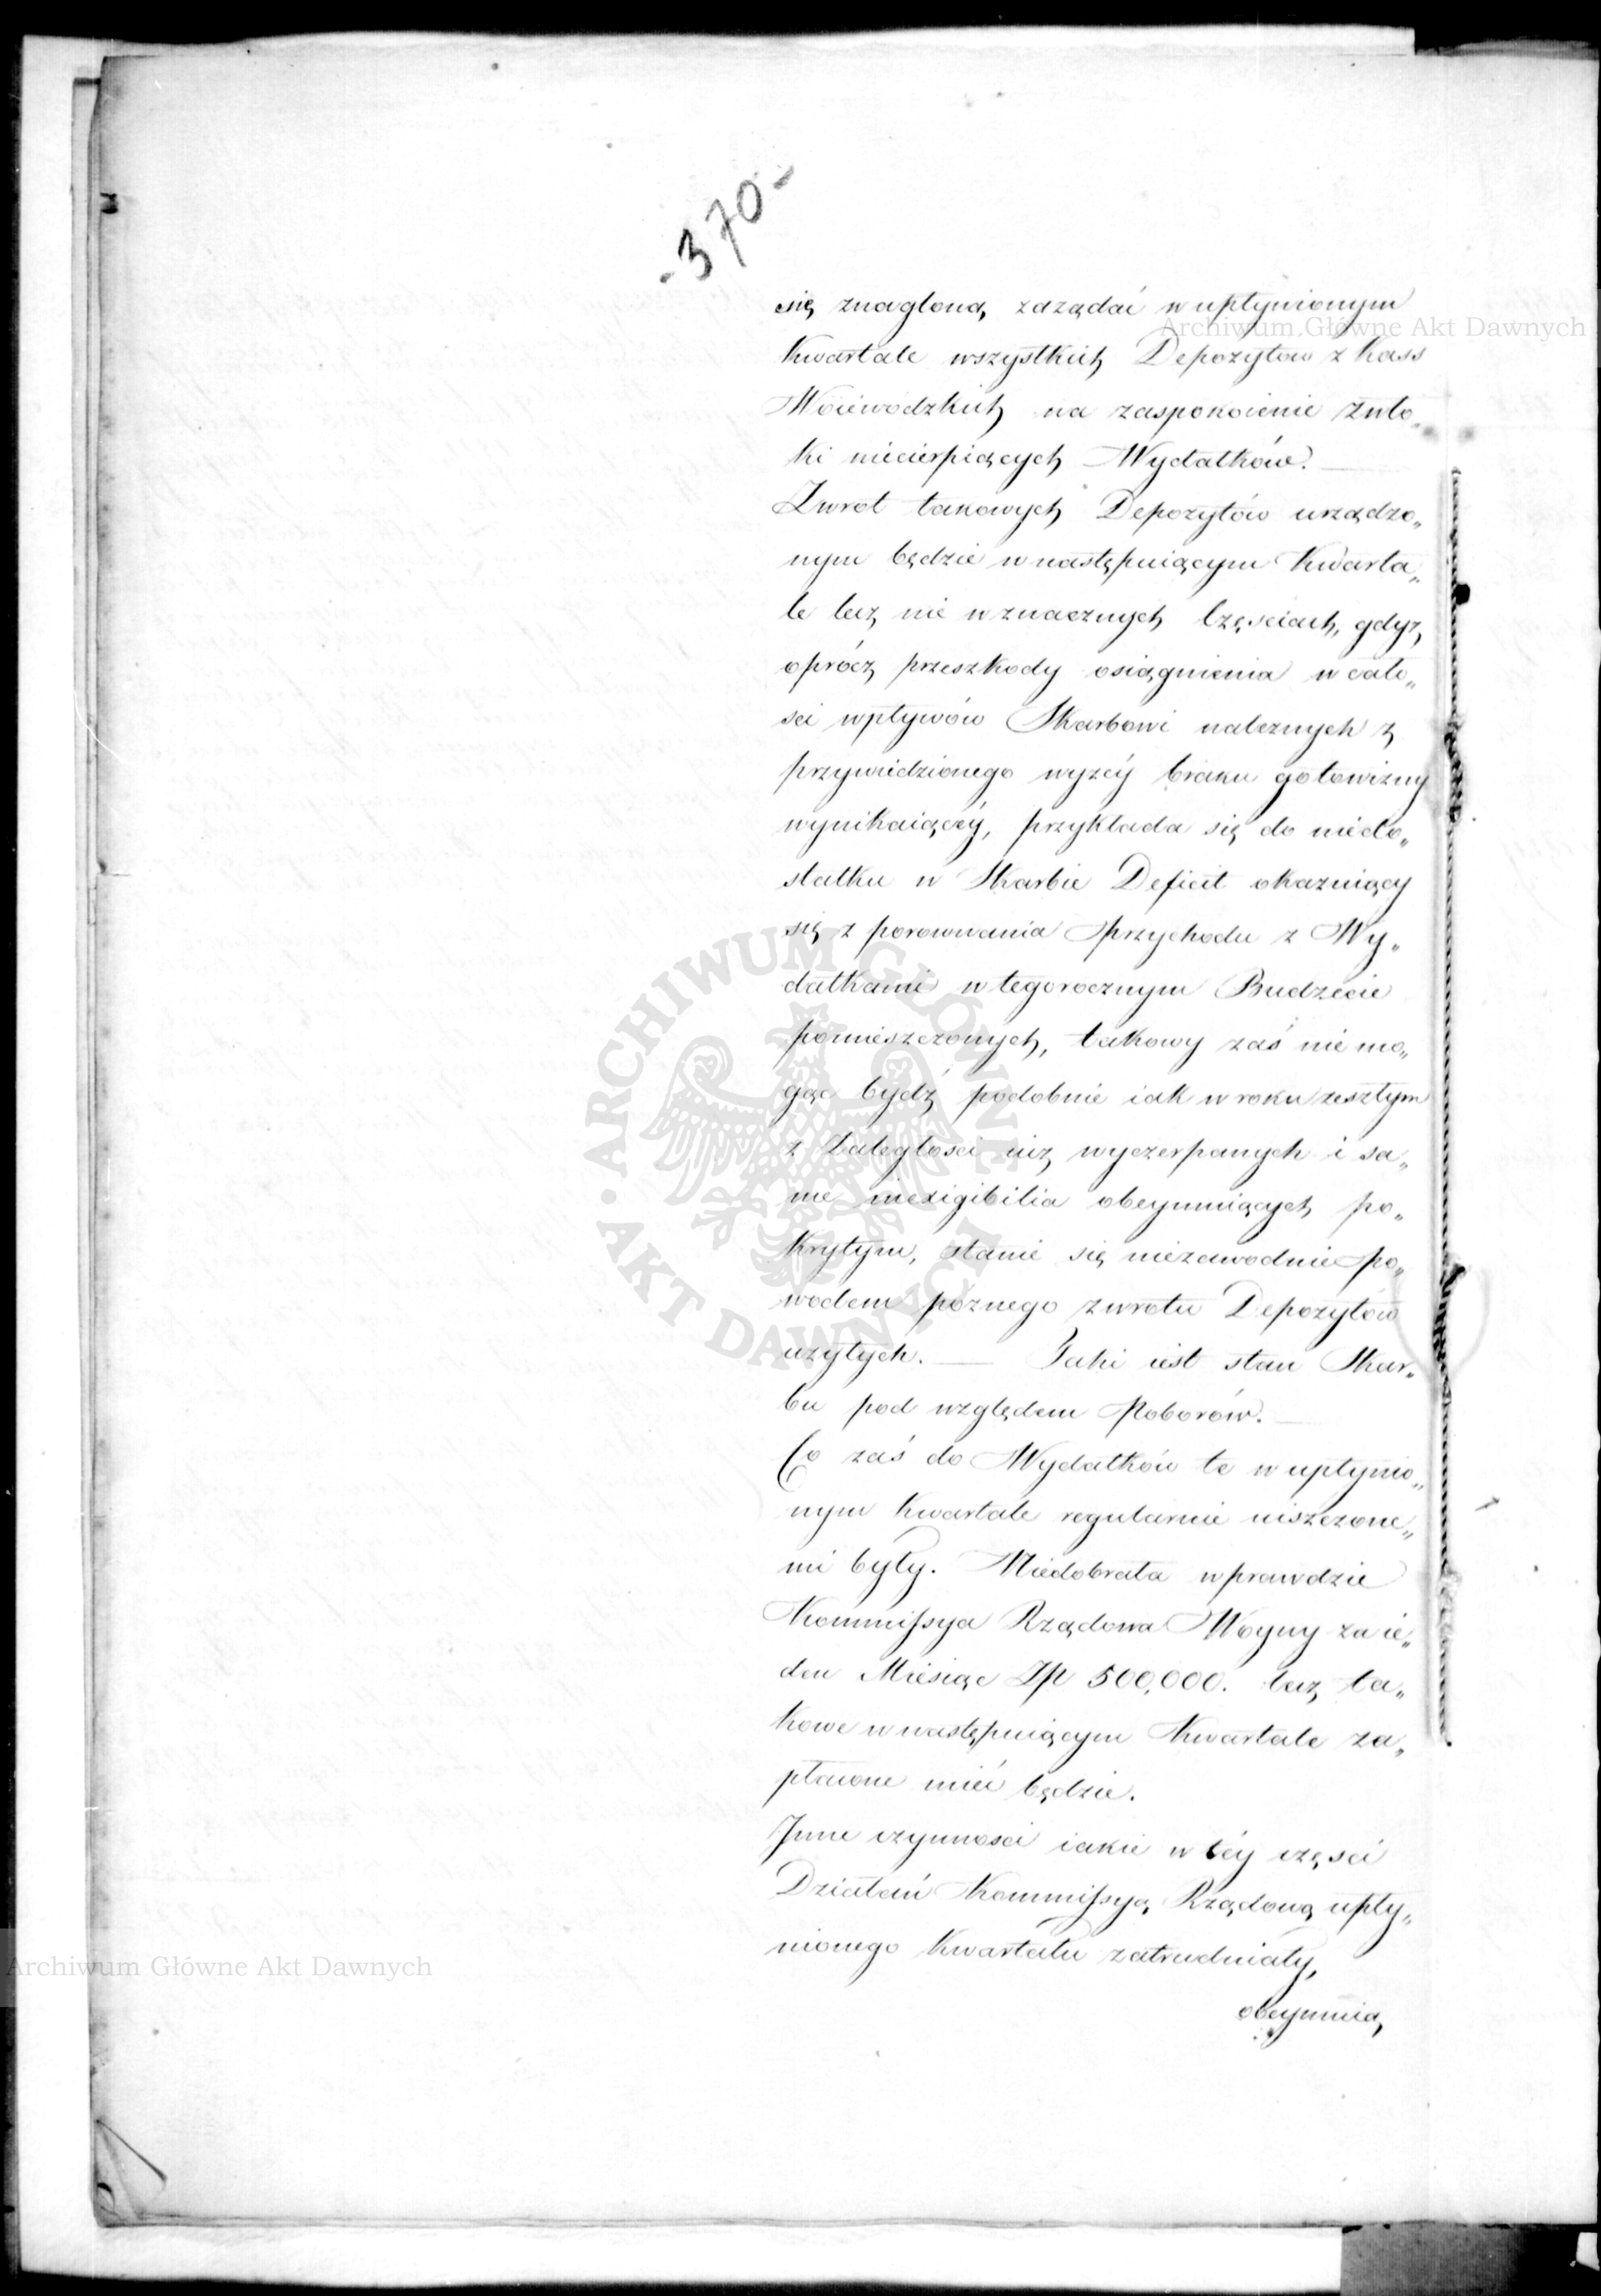 -370-
się znagloną zażądać w upłynionym
Kwartale wszystkich Depozytow z Kass
Woiewodzkich na zaspokoienie zwło„
ki niecierpiących Wydatków. —
Zwrot takowych Depozytów urządzo„
nym będzie w następuiącym Kwarta„
le lecz nie w znacznych Częsciach, gdyż
oprócz przeszkody osiągnienia w cało„
sci wpływów Skarbowi należnych z
przywiedzionego wyżéy braku gotowizny
wynikaiącéy, przykłada się do niedo„
statku w Skarbie Deficit okazuiący
się z porownania Przychodu z Wy„
datkami w tegorocznym Budżecie
pomieszczonych, takowy zaś nie mo„
gąc bydź podobnie iak w roku zeszłym
z Zaległosci iuż wyczerpanych i sa„
me inexigibilia obeymuiących po„
krytym, stanie się niezawodnie po„
wodem poznego zwrotu Depozytów
użytych. — Taki iest stan Skar„
bu pod względem Poborów. —
Co zaś do Wydatków te w upłynio„
nym Kwartale regularnie uiszczone„
mi były. Niedobrała wprawdzie
Kommissya Rządowa Woyny za ie„
den Miesiąc Zp 500,000. lecz ta„
kowe w następuiącym Kwartale za„
płacone mieć będzie.
Inne czynnosci iakie w téy częsci
Działań Kommissyą Rządową upły„
nionego Kwartału zatrudniały,
obeymuią
Archiwum Główne Akt Dawnych
Archiwum Główne Akt Dawnych
ARCHIWUM GŁÓWNE AKT DAWNYCH